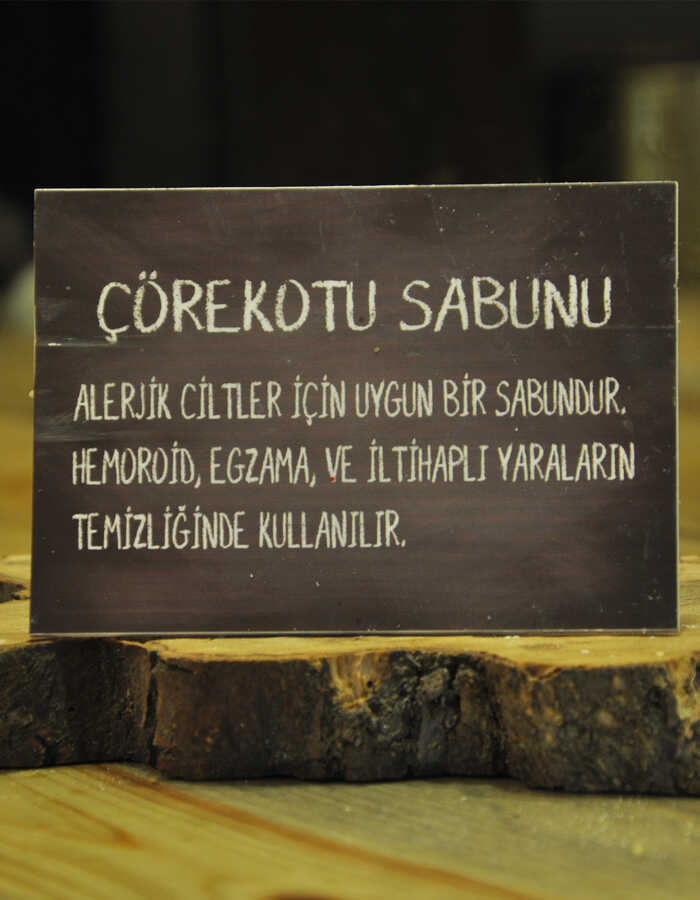 ÇÖREKOTU SABUNU
ALERJİK CİLTLER İÇİN UYGUN BİR SABUNDUR.
HEMOROİD, EGZAMA, VE İLTİHAPLI YARALARIN
TEMİZLİĞİNDE KULLANILIR.